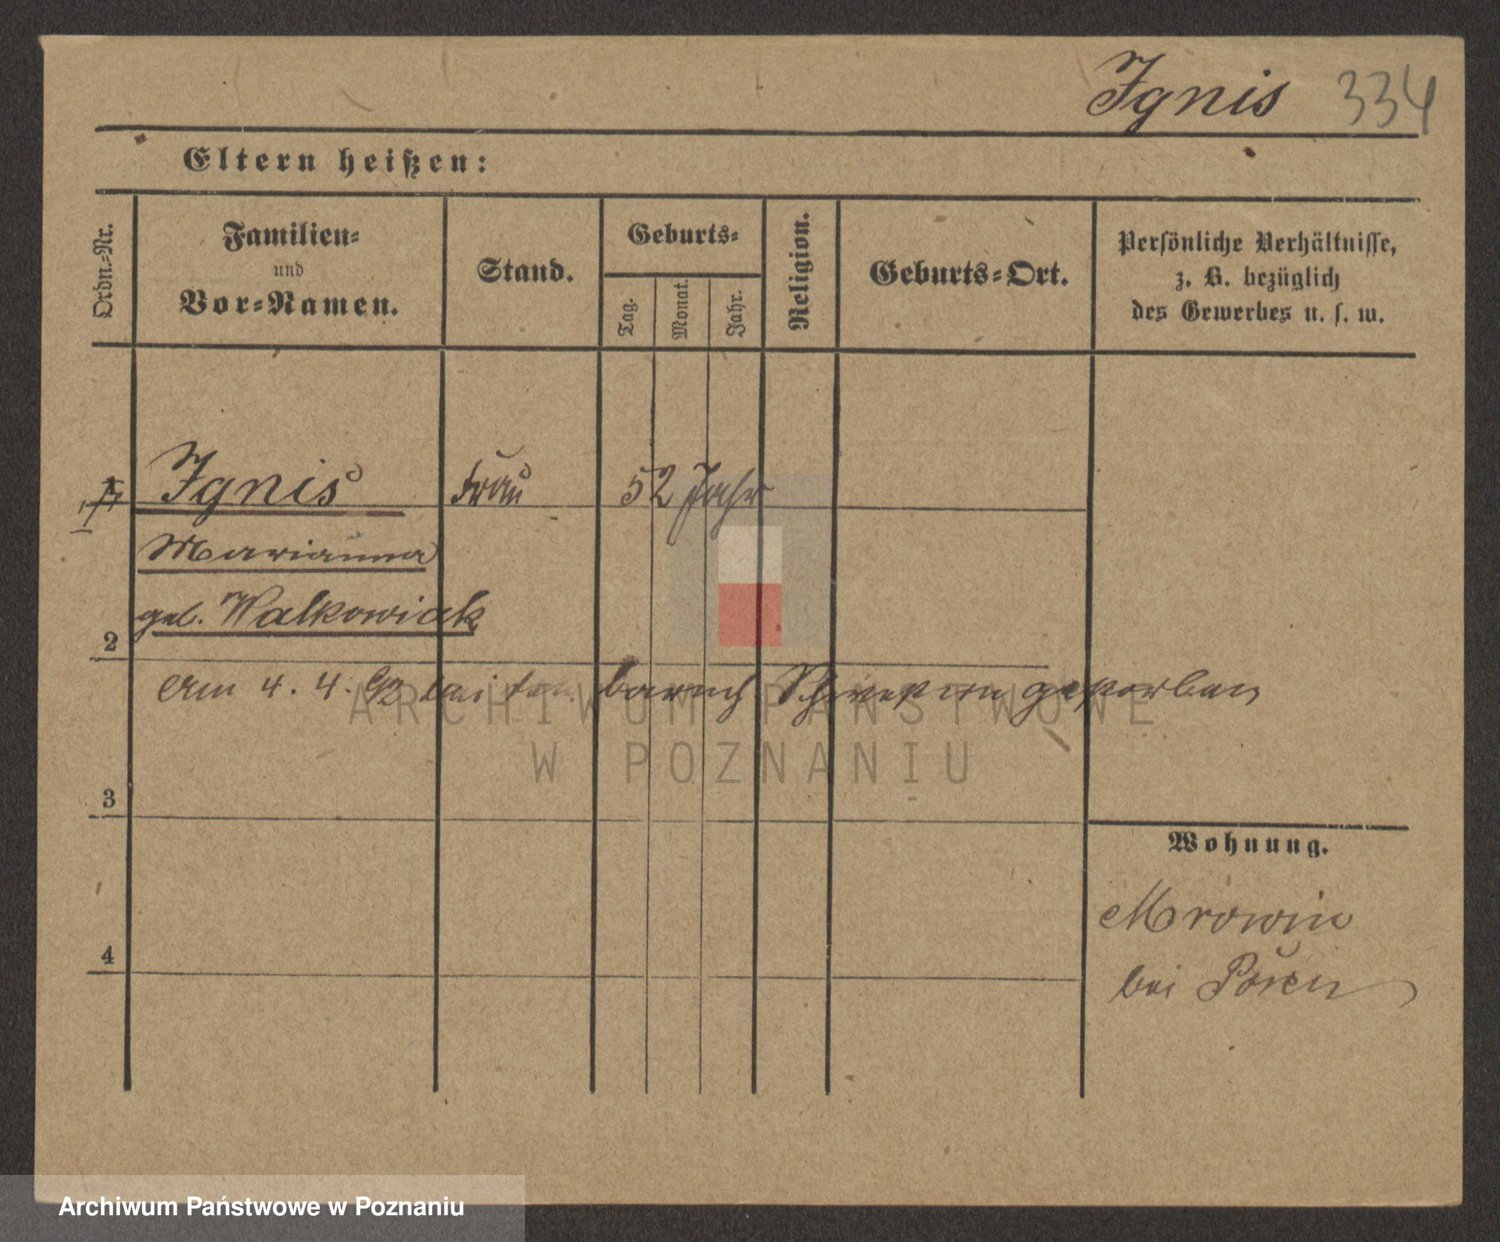 Ignis 334
Eltern heißen:
Ordn.-Nr.
Familien-
und
Vor-Namen.
Stand.
Geburts-
Tag.
Monat.
Jahr.
Religion.
Geburts-Ort.
Persönliche Verhältnisse,
z. B. bezüglich
des Gewerbes u. s. w.
1 Ignis Frau 52 Jahr
Marianna
geb. Walkowiak
2
Am 4. 4. 92 bei gestorben
ARCHIWUM PAŃSTWOWE
W POZNANIU
3
Wohnung.
Mrowino
bei Posen
4
Archiwum Państwowe w Poznaniu